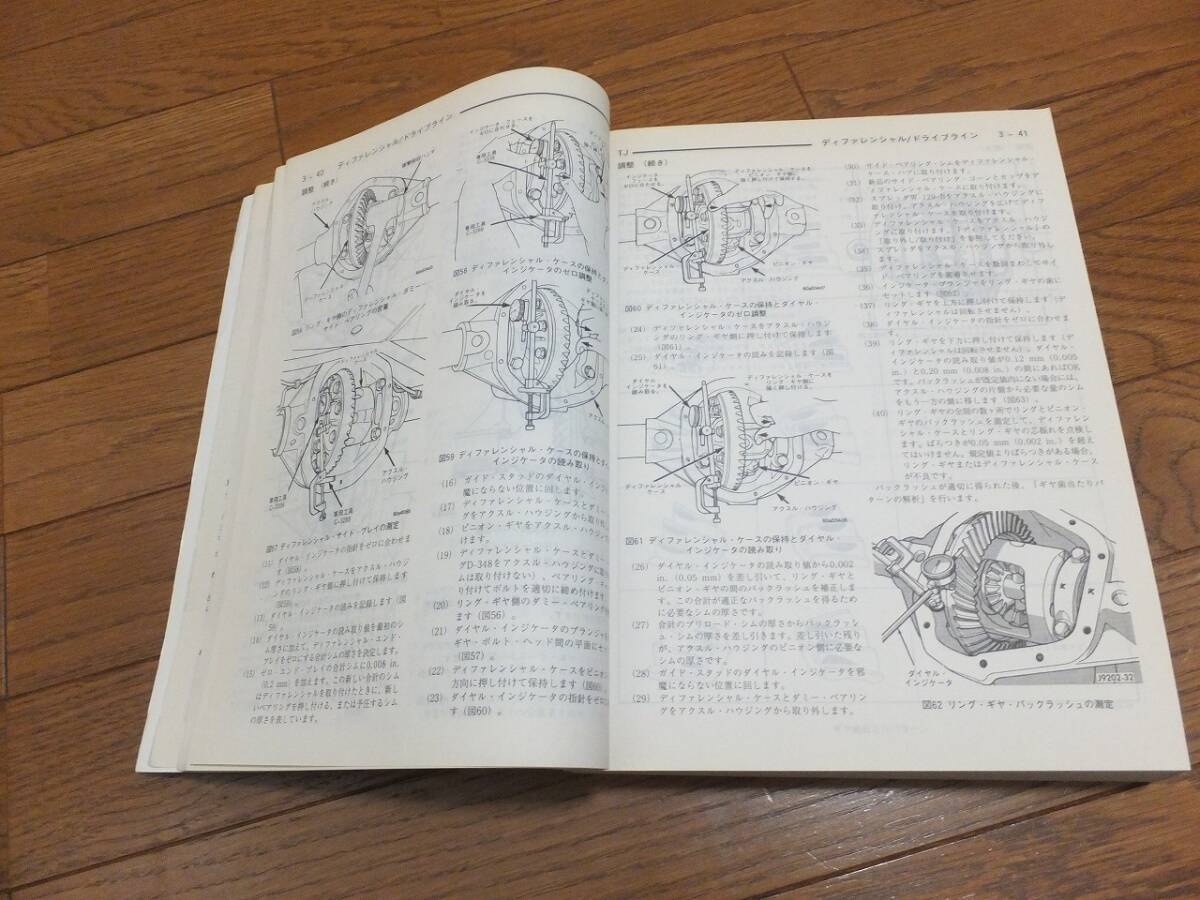 3 - 40 ディファレンシャル/ドライブライン
調整 (続き)
専用工具
C-3288
ディファレンシャル・
ケース
アクスル・
ハウジング
専用工具
C-3288
図57 ディファレンシャル・サイド・プレイの測定
(11) ダイヤル・インジケータの指針をゼロに合わせま
す (図58)。
(12) ディファレンシャル・ケースをアクスル・ハウジ
ングのリング・ギヤ側に押し付けて保持します
(図59)。
(13) ダイヤル・インジケータの読みを記録します (図
59)。
(14) ダイヤル・インジケータの読み取り値を最初のシ
ム厚さに加えて、ディファレンシャル・エンド・
プレイをゼロにする合計シムの厚さを決定します。
(15) ゼロ・エンド・プレイの合計シムに0.008 in.
(0.2 mm) を加えます。この新しい合計のシム
はディファレンシャルを取り付けたときに、新し
いベアリングを押し付ける、または予圧するシム
の厚さを表しています。
図58 ディファレンシャル・ケースの保持とダ
インジケータのゼロ調整
ダイヤル・
インジケータを
読み取る。
アクス
図59 ディファレンシャル・ケースの保持とダイ
インジケータの読み取り
(16) ガイド・スタッドのダイヤル・インジ
魔にならない位置に回します。
(17) ディファレンシャル・ケースとダミー
グをアクスル・ハウジングから取り外
(18) ピニオン・ギヤをアクスル・ハウジン
けます。
(19) ディファレンシャル・ケースとダミー
グD-348をアクスル・ハウジングに取
ムは取り付けない)、ベアリング・
り付けてボルトを適切に締め付けます
(20) リング・ギヤ側のダミー・ベアリング
ます (図56)。
(21) ダイヤル・インジケータのプランジャ
ギヤ・ボルト・ヘッド間の平面にセ
(図57)。
(22) ディファレンシャル・ケースをピニオ
方向に押し付けて保持します (図60)
(23) ダイヤル・インジケータの指針をゼロ
す (図60)。
TJ ディファレンシャル/ドライブライン 3 - 41
調整 (続き)
ディファレンシャル・
ケース
ピニオン・ギヤ
アクスル・ハウジング
図60 ディファレンシャル・ケースの保持とダイヤル・
インジケータのゼロ調整
(24) ディファレンシャル・ケースをアクスル・ハウジ
ングのリング・ギヤ側に押し付けて保持します
(図61)。
(25) ダイヤル・インジケータの読みを記録します (図
61)。
ダイヤル・
インジケータを
読み取る。
ディファレンシャル・ケースを
リング・ギヤ側に
強く押し付ける。
ディファレンシャル・
ケース
ピニオン・ギヤ
アクスル・ハウジング
図61 ディファレンシャル・ケースの保持とダイヤル・
インジケータの読み取り
(26) ダイヤル・インジケータの読み取り値から0.002
in. (0.05 mm) を差し引いて、リング・ギヤと
ピニオン・ギヤの間のバックラッシュを補正しま
す。この合計が適正なバックラッシュを得るため
に必要なシムの厚さです。
(27) 合計のプリロード・シムの厚さからバックラッシ
ュ・シムの厚さを差し引きます。差し引いた残り
が、アクスル・ハウジングのピニオン側に必要な
シムの厚さです。
(28) ガイド・スタッドのダイヤル・インジケータを邪
魔にならない位置に回します。
(29) ディファレンシャル・ケースとダミー・ベアリン
グをアクスル・ハウジングから取り外します。
(30) サイド・ベアリング・シムをディファレンシャル・
ケース・ハブに取り付けます。
(31) 新品のサイド・ベアリング・コーンとカップをデ
ィファレンシャル・ケースに取り付けます。
(32) スプレッダW-129-Bをアクスル・ハウジングに
取り付け、アクスル・ハウジングを広げてディフ
ァレンシャル・ケースを取り付けます。
(33) ディファレンシャル・ケースをアクスル・ハウジ
ングに取り付けます。「ディファレンシャル」の
「取り外し/取り付け」を参照してください。
(34) スプレッダをアクスル・ハウジングから取り外し
ます。
(35) ディファレンシャル・ケースを数回まわしてサイ
ド・ベアリングを密着させます。
(36) インジケータ・プランジャをリング・ギヤの歯に
セットします (図62)。
(37) リング・ギヤを上方に押し付けて保持します (デ
ィファレンシャルは回転させません)。
(38) ダイヤル・インジケータの指針をゼロに合わせま
す。
(39) リング・ギヤを下方に押し付けて保持します (デ
ィファレンシャルは回転させません)。ダイヤル・
インジケータの読み取り値が0.12 mm (0.005
in.) と0.20 mm (0.008 in.) の間にあればOK
です。バックラッシュが既定値内にない場合には、
アクスル・ハウジングの片側から必要な量のシム
をもう一方の側に移します (図63)。
(40) リング・ギヤの全周の数ヶ所でリングとピニオン・
ギヤのバックラッシュを測定して、ディファレン
シャル・ケースとリング・ギヤの芯振れを点検し
ます。ばらつきが0.05 mm (0.002 in.) を超え
てはいけません。規定値よりばらつきがある場合、
リング・ギヤまたはディファレンシャル・ケース
が不良です。
バックラッシュが適切に得られた後、「ギヤ歯当たりパ
ターンの解析」を行います。
ダイヤル・
インジケータ
J9202-32
図62 リング・ギヤ・バックラッシュの測定